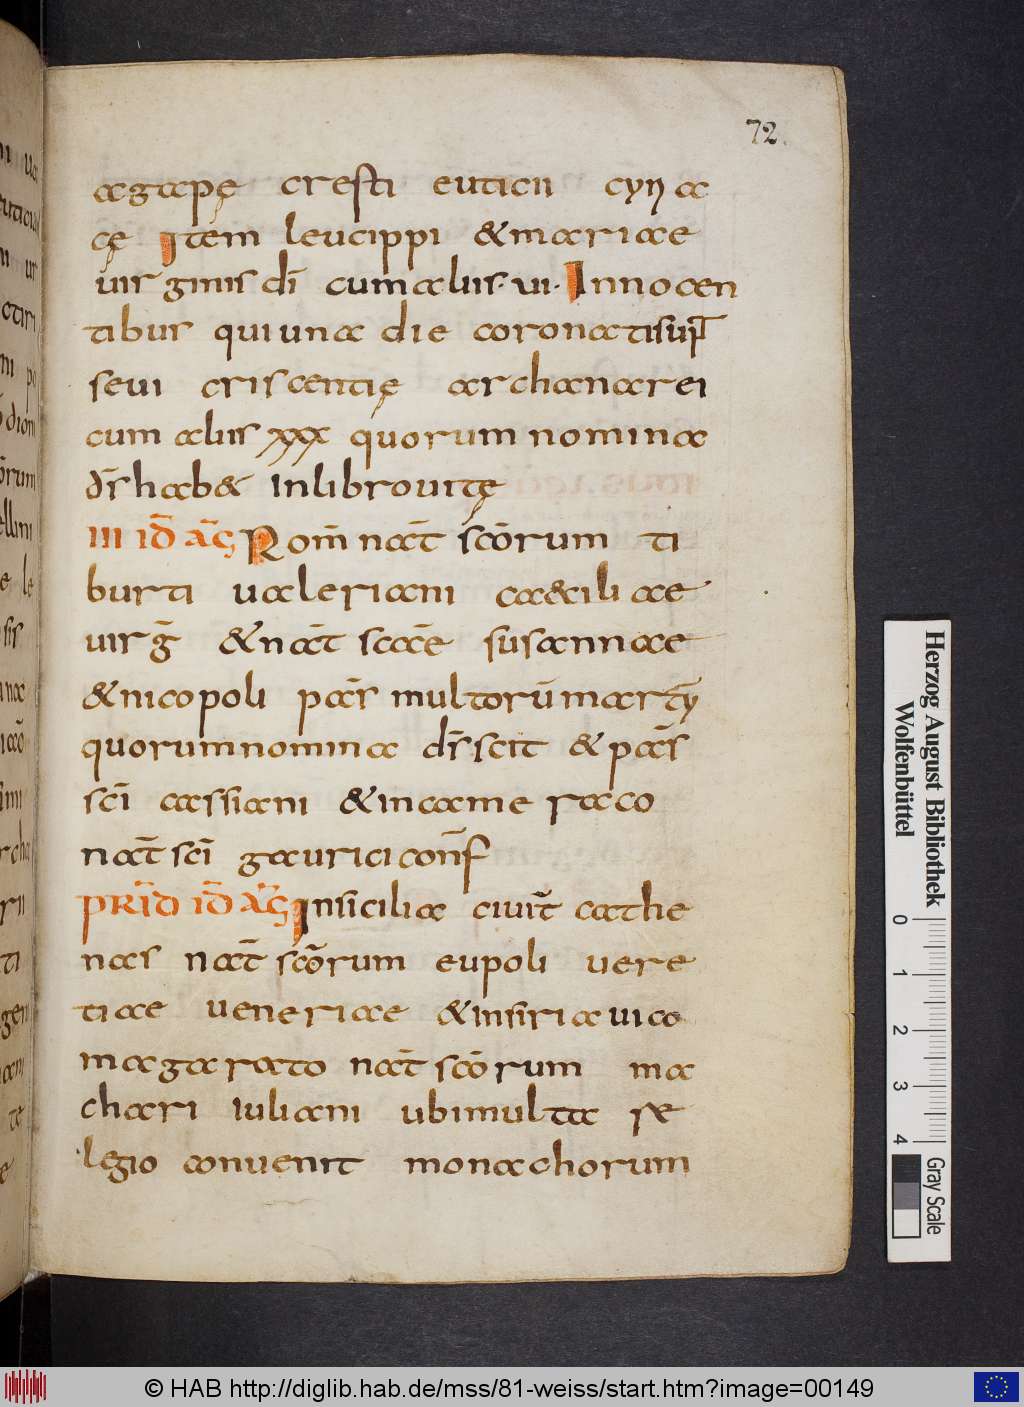 72.
agapę cresti euticii cyria
cę Item leucippi & mariae
uirginis dī cum aliis · ui · Innocen
tibus qui una die coronati sup̄
seui criscentię archanarei
cum aliis xxx quorum nomina
dr̄ hab& in libro uitę
III ID̄ AḠ Rom̄ nat̄ scōrum ti
burti ualeriani ca&ciliae
uirḡ & nat̄ scāe susannae
& nicopoli pas̄ multorū marty̅
quorum nomina dr̄ scit & pas̄
scī cassiani & in ame raco
nat̄ scī gaurici conf̄
PRID̄ ID̄ AḠ In sicilia ciuit̄ cathe
nas nat̄ scōrum eupoli uere
tiae ueneriae & in siria uico
magarato nat̄ scōrum ma
chari iuliani ubi multa re
legio conuenit monachorum
Herzog August Bibliothek
Wolfenbüttel
0 1 2 3 4
Gray Scale
© HAB http://diglib.hab.de/mss/81-weiss/start.htm?image=00149